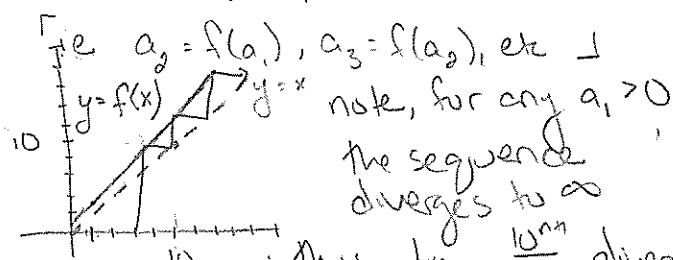 ie a₂ = f(a₁), a₃ = f(a₂), etc
y=f(x) y=x note, for any a₁ > 0
10 the sequence
diverges to ∞
10